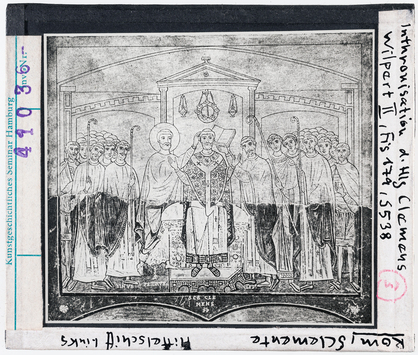 Kunstgeschichtliches Seminar Hamburg
Inv. Nr.
49036
Inthronisation d. Hlg Clemens
Wilpert II, Fig 174, S538
5
Rom, S. Clemente
Mittelschiff links
SCS CLE
MENS
PP